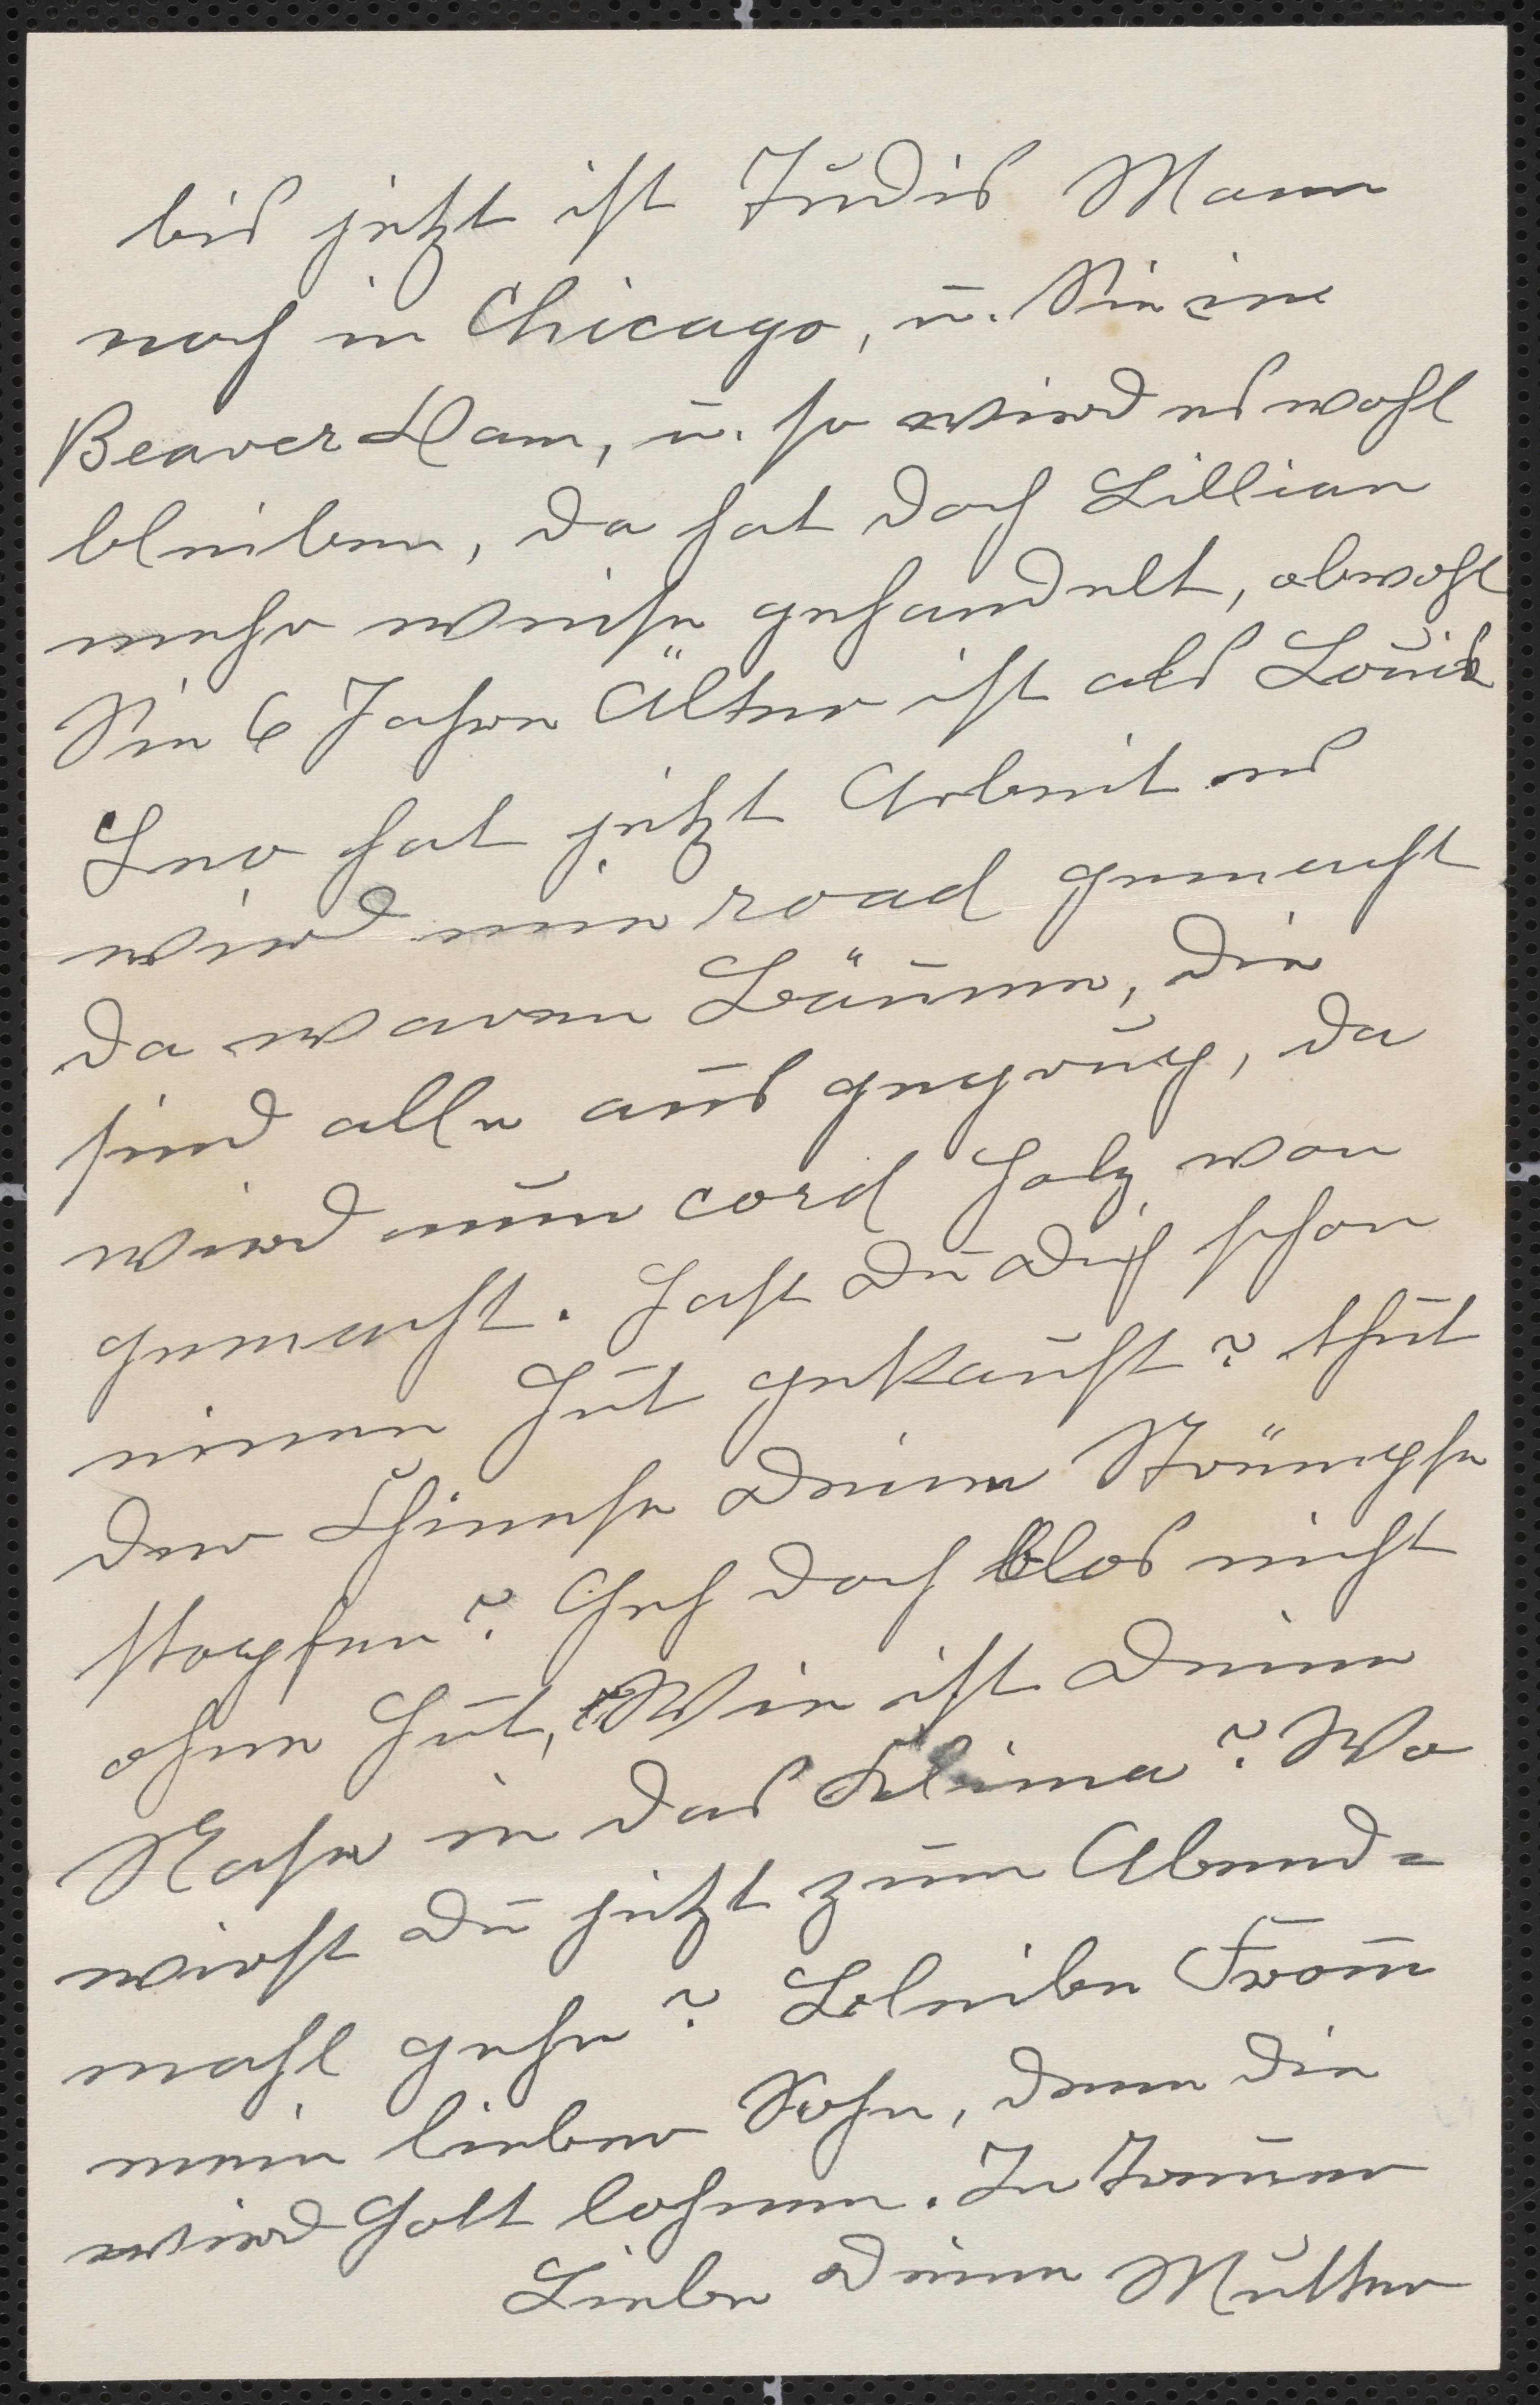 bis jetzt ist Judis Mann
noch in Chicago, u. Sie ine
Beaver Dam, u. so wird es wohl
bleiben, da hat doch Lillian
mehr weise gehandelt, obwohl
Sie 6 Jahre Älter ist als Louis
Leo hat jetzt Arbeit es
wird eine road gemacht
da waren Bäume, die
sind alle aus gegrug, da
wird nun cord Holz von
gemacht. Hast du dich schon
einen Hut gekauft? thut
der Chinese deine Strümpfe
stopfen? Geh doch blos nicht
ohne Hut, Wie ist deine
Nase in das Klima? Wo
wirst du jetzt zum Abend=
mahl gehe? Bleibe From̄
mein lieber Sohn, denn die
wird Gott lohnen. In Treuer
Liebe deine Mutter